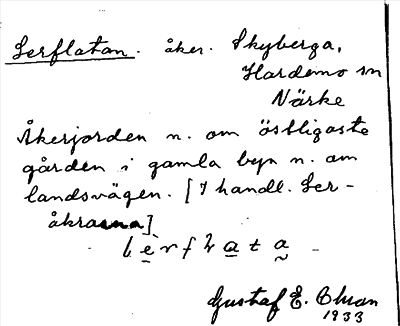 Lerflatan. åker. Skyberga,
Hardemo sn
Närke
Åkerjorden n. om östligaste
gården i gamla byn n. om
landsvägen. [I handl. Ler-
åkrarna]
Gustaf E. Ohman
1933